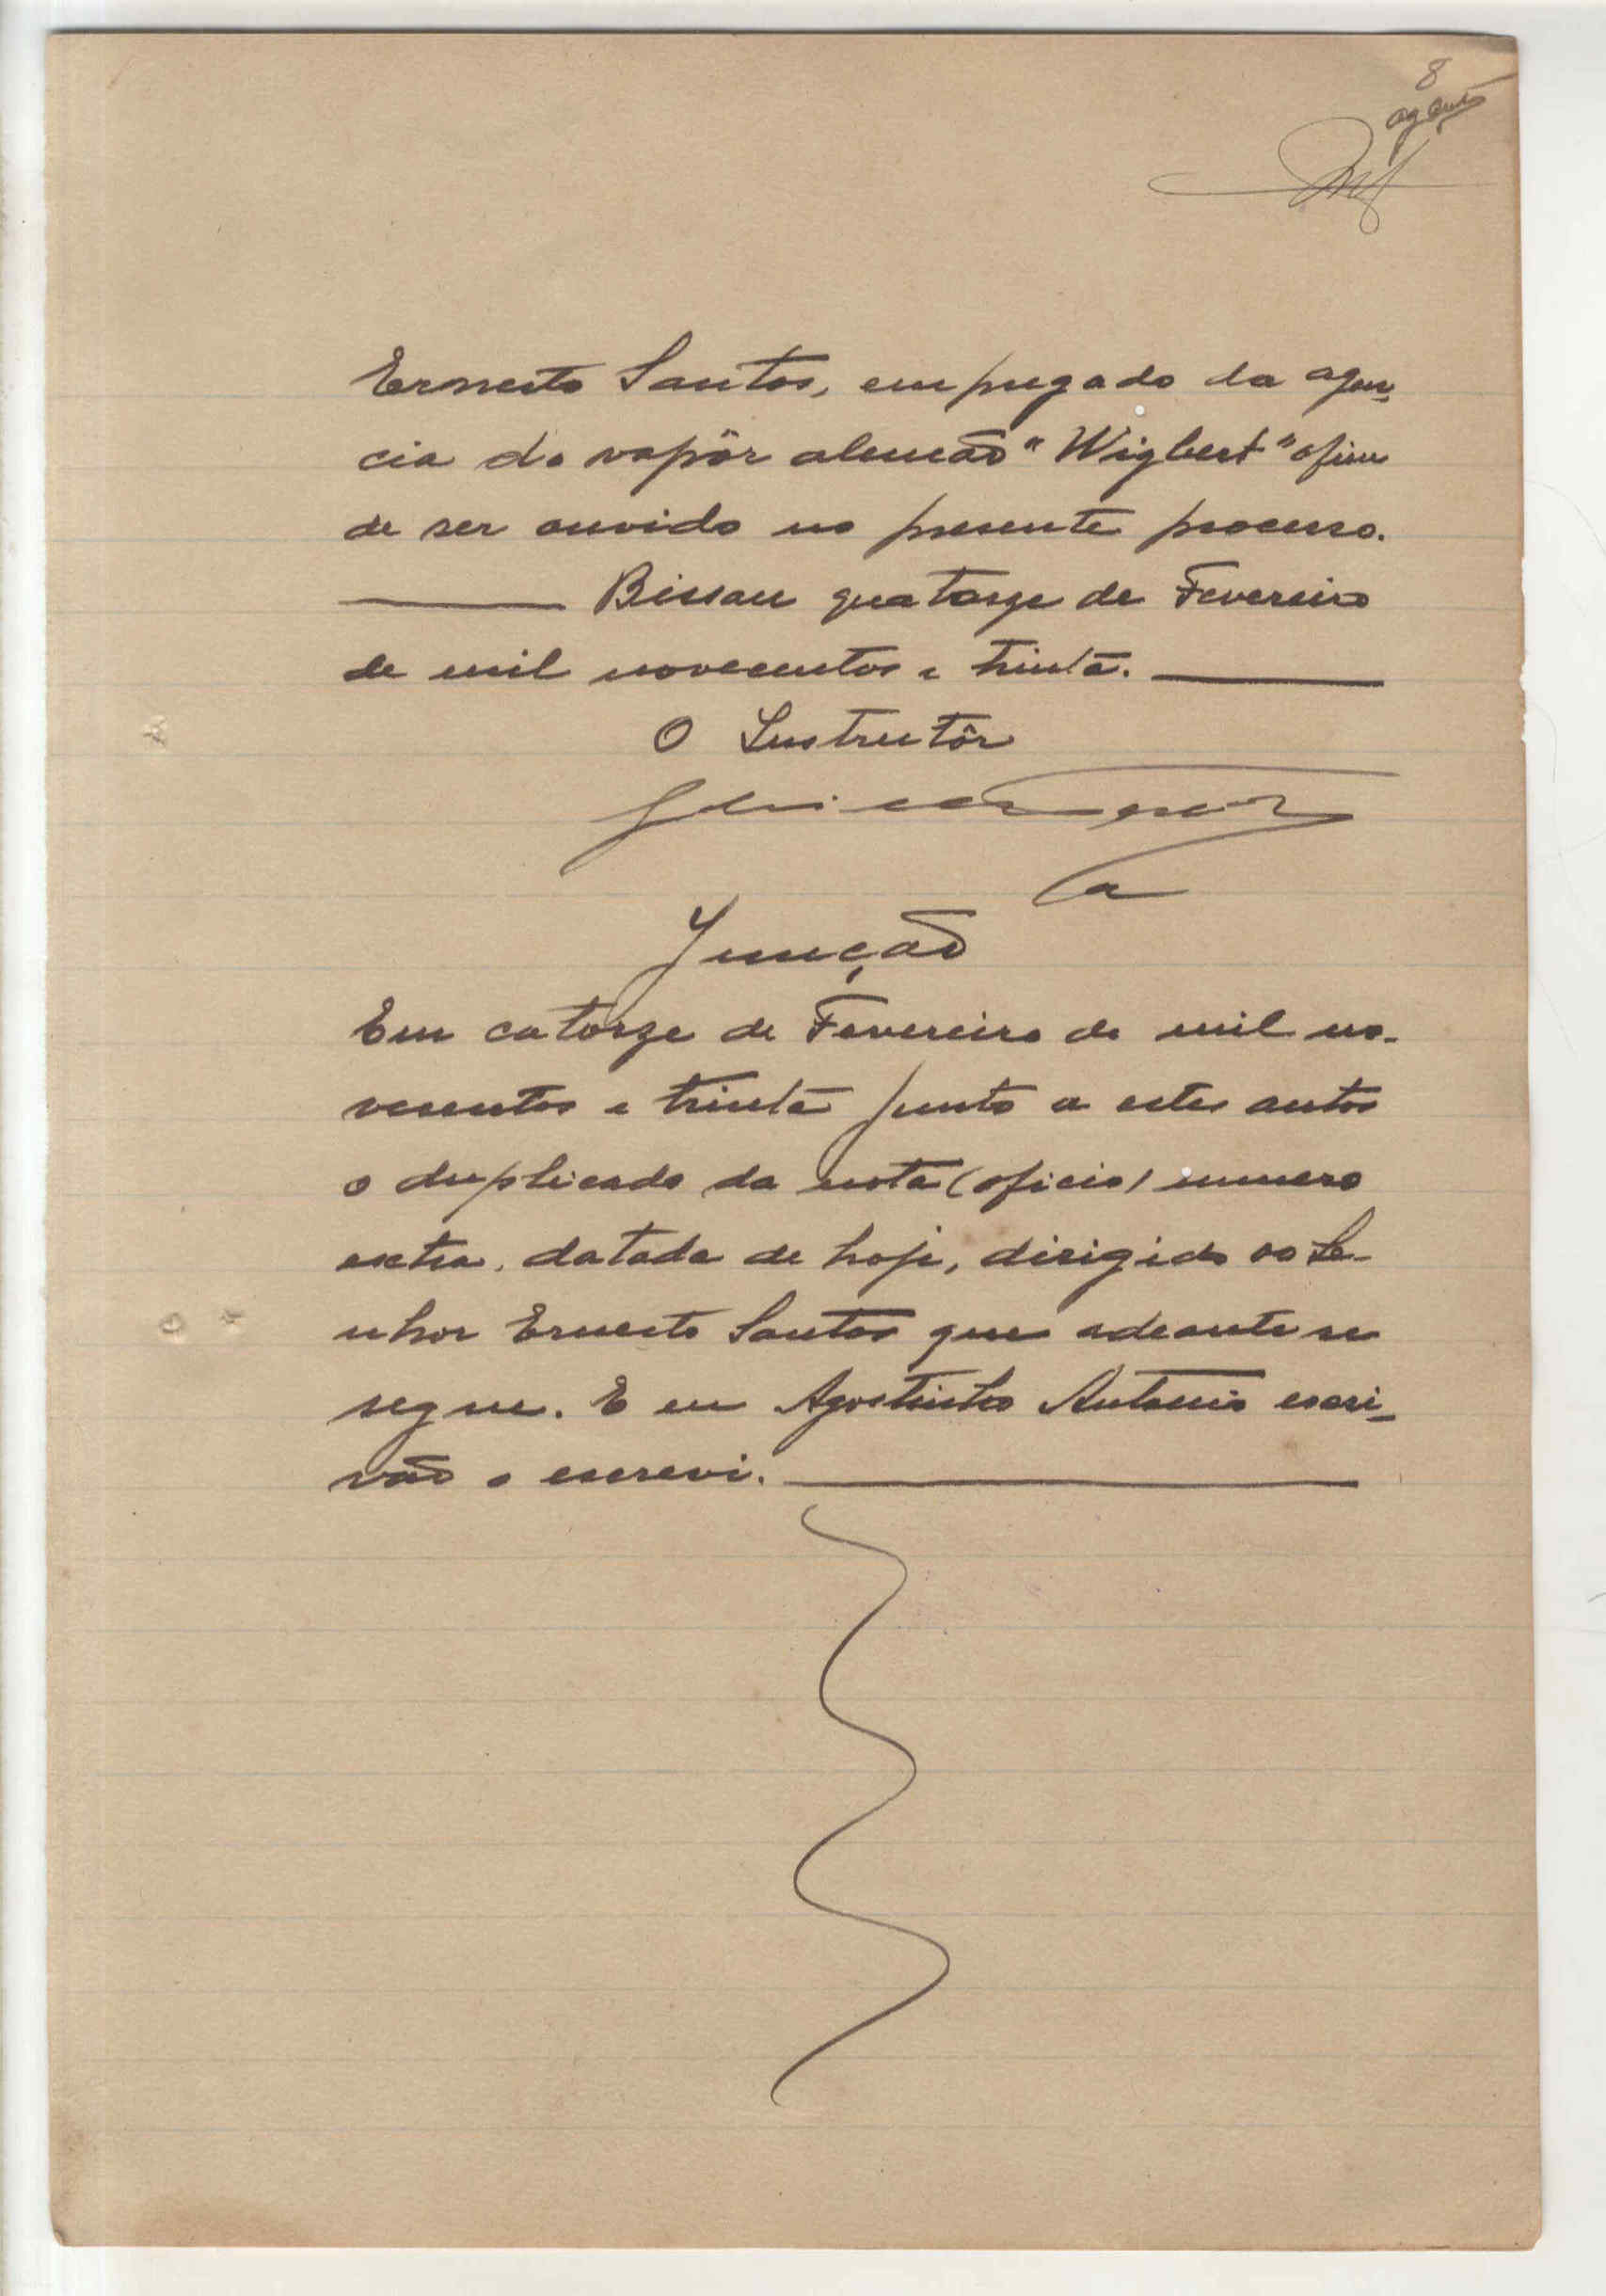 8
Ernesto Santos, empregado da agen-
cia do vapôr alemão "Wigbert" afim
de ser ouvido no presente processo.
Bissau quatorze de Fevereiro
de mil novecentos e trinta.
O Instrutôr
Junção
Em catorze de Fevereiro de mil no-
vecentos e trinta junto a estes autos
o duplicado da nota (oficio) numero
extra, datada de hoje, dirigida ao Se-
nhor Ernesto Santos que adeante se
segue. E eu Agostinho Antonio escri-
vão o escrevi.